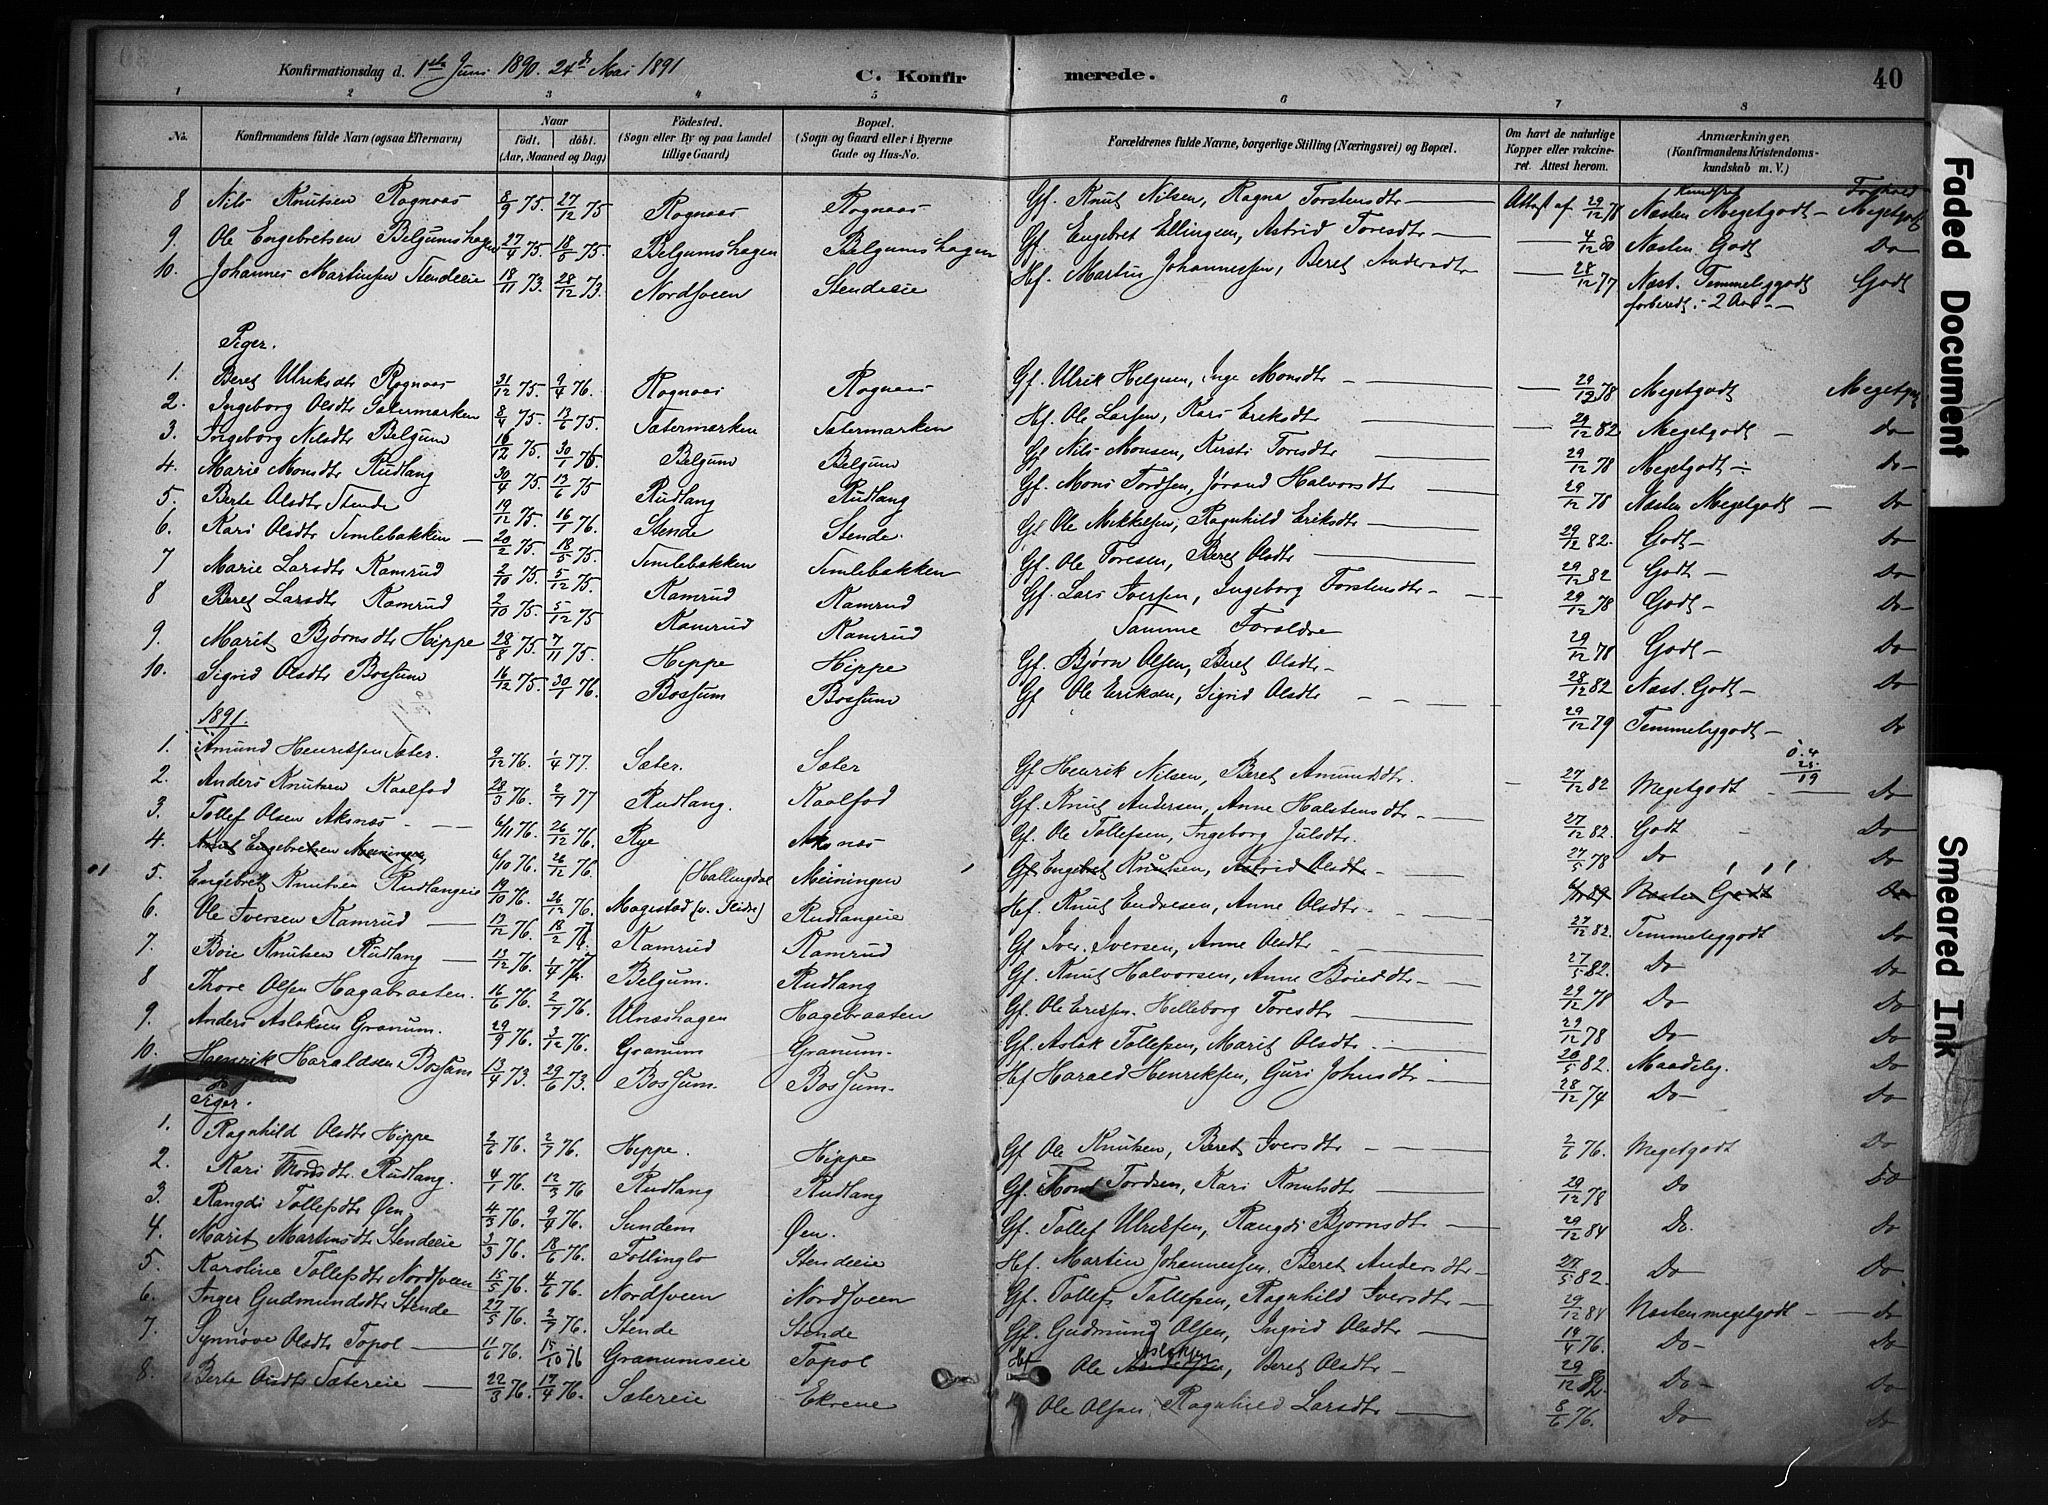 Konfirmationsdag d. 1ste Juni 1890. 24de Mai 1891
C. Konfirmerede.
40
1 2 3 4 5 6 7 8
No. Konfirmandens fulde Navn (ogsaa Efternavn) Naar født. døbt. (Aar, Maaned og Dag) Fødested. (Sogn eller By og paa Landet tillige Gaard) Bopæl. (Sogn og Gaard eller i Byerne Gade og Hus-No. Forældrenes fulde Navne, borgerlige Stilling (Næringsvei) og Bopæl. Om havt de naturlige Kopper eller vakcineret. Attest herom. Anmærkninger, (Konfirmandens Kristendomskundskab m. V.)
Kundskab Forhold
8 Nils Knutsen Rognaas 8/9 75. 27/12 75 Rognaas Rognaas Gf. Knut Nilsen, Ragna Torstensdtr Attest af 29/12 78 Næsten Megetgodt Megetgodt
9. Ole Engebretsen Belgumshagen 27/4 75. 18/5 75. Belgumshagen Belgumshagen Gf Engebret Ellingsen, Astrid Toresdtr 4/12 80 Næsten Godt Do
10. Johannes Martinsen Stendeeie 18/11 73. 28/12 73. Nordsveen Stendeeie Hf. Martin Johannessen, Beret Andersdtr 28/12 77 Næst. Temmeliggodt Godt
forberedt i 2 Aar
Piger.
1. Beret Ulriksdtr Rognaas 31/12 75. 9/4 76. Rognaas Rognaas Gf. Ulrik Helgesen, Inge Monsdtr 29/12 78 Megetgodt Megetgodt
2. Ingeborg Olsdtr Sætermarken 8/4 75. 13/6 75. Sætermarken Sætermarken Hf. Ole Larsen, Kari Eriksdtr 29/12 82 Megetgodt Do
3. Ingeborg Nilsdtr Belgum 16/12 75. 30/1 76. Belgum Belgum Gf Nils Monsen, Kirsti Toresdtr 29/12 78 Megetgodt Do
4. Marie Monsdtr Rudlang 30/4 75. 13/6 75 Rudlang Rudlang Gf. Mons Tordsen, Jørand Halvorsdtr 29/12 78 Næsten Megetgodt Do
5. Berte Olsdtr Stende 19/12 75. 16/1 76. Stende Stende Gf Ole Mikkelsen, Ragnhild Eriksdtr 29/12 82. Godt Do
6. Kari Olsdtr Temlebakken 20/2 75. 18/5 75. Temlebakken Temlebakken Gf. Ole Toresen, Beret Olsdtr 29/12 82 Godt Do
7 Marie Larsdtr Kamrud 2/10 75. 5/12 75. Kamrud Kamrud Gf. Lars Iversen, Ingeborg Torstensdtr 29/12 78 Godt Do
8 Beret Larsdtr Kamrud 2/10 75. 5/12 75 Kamrud Kamrud Samme Forældre 29/12 78 Godt Do
9. Marit Bjørnsdtr Hippe 28/8 75. 7/11 75. Hippe Hippe Gf. Bjørn Olsen, Beret Olsdtr 28/12 82 Næst. Godt Do
10. Sigrid Olsdtr Bossum 16/12 75. 30/1 76. Bossum Bossum Gf Ole Eriksen, Sigrid Olsdtr 29/12 79 Temmeliggodt Do
1891.
1. Amund Henriksen Sæter. 9/12 76. 1/4 77. Sæter. Sæter Gf Henrik Nilsen, Beret Amundsdtr. 27/12 82 Megetgodt Do
2. Anders Knutsen Kaalfod 28/3 76. 2/7 77 Rudlang. Kaalfod Gf. Knut Andersen, Anne Halstensdtr 27/12 82. Godt Do
3. Tollef Olsen Aksnæs 6/11 76. 26/12 76. Rye Aksnæs Gf. Ole Tollefsen, Ingeborg Julsdtr. 27/5 78 Do Do
4. Knut Engebretsen Meiningen 6/10 76. 26/12 76. (Hallingdal Meiningen Gf Engebret Knutsen, Astrid Olsdtr Næsten Godt Do
5. Engebret Knutsen Rudlangeie 19/10 76. 26/12 76. Magestad (v. Slidre) Rudlangeie Hf. Knut Endresen, Anne Olsdtr 27/12 82. Temmeliggodt Do
6. Ole Iversen Kamrud 13/12 76. 18/2 77. Kamrud Kamrud Gf Iver Iversen, Anne Olsdtr 27/5 82. Do Do
7. Boie Knutsen Rudlang 13/12 76. 1/4 77. Belgum. Rudlang Gf. Knut Halvorsen, Anne Boiedtr 29/12 78 Do Do
8 Thore Olsen Hagabraaten. 16/6 76. 2/7 76. Ulnæshagen Hagebraaten Gf. Ole Ericsen. Helleborg Toresdtr 29/12 78 Do Do
9. Anders Aslaksen Granum. 29/9 76. 3/12 76. Granum Granum. Gf. Aslak Tollefsen, Marit Olsdtr 20/5 82. Maadelig. Do
10. Henrik Haraldsen Bossum 13/4 73. 29/6 73. Bossum. Bossum. Hf Harald Henriksen, Guri Johnsdtr 28/12 74 Do Do
Piger.
1. Ragnhild Olsdtr Hippe 2/6 76. 2/7 76. Hippe. Hippe Gf Ole Knutsen, Beret Iversdtr 2/6 76. Megetgodt Do
2. Kari Thordsdtr. Rudlang. 4/1 76. 12/3 76 Rudlang Rudlang Gf. Tordsen, Kari Knutsdtr 29/12 78 Do Do
3. Rangdi Tollefsdtr Øen 4/3 76. 9/4 76. Sundem Øen. Gf. Tollef Ulriksen, Rangdi Bjørnsdtr 29/12 84 Do. Do
4. Marit Martinsdtr Stendeeie 3/3 76. 18/6 76. Follinglo Stendeeie Hf. Martin Johannessen. Beret Andersdtr 27/5 82. Do Do
5. Karoline Tollefsdtr Nordsveen 15/5 76. 4/6 76. Nordsveen Nordsveen Gf. Tollef Tollefsen, Ragnhild Iversdtr 29/12 84 Næstenmegetgodt Do
6. Inger Gudmundsdtr Stende 27/5 76. 2/7 76. Stende Stende Gf. Gudmund Olsen, Ingrid Olsdtr 19/4 76. Do Do
7. Synnøve Olsdtr Topol 11/6 76. 15/10 76 Granumseie Topol Hf Ole Aslaksen, Beret Olsdtr 29/12 82. Do Do
8. Berte Olsdtr Sætereie 22/3 76. 17/4 76. Sætereie Ekrene Ole Olsen Ragnhild Larsdtr 8/6 76. Do Do
Faded Document
Smeared Ink